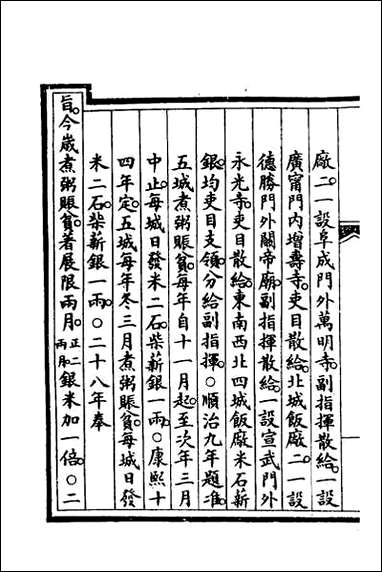 廠。二一設阜成門外萬明寺。副指揮散給。一設
廣甯門內增壽寺。吏目散給。北城飯廠。二一設
德勝門外關帝廟。副指揮散給。一設宣武門外
永光寺。吏目散給。東南西北四城飯廠米石薪
銀。均吏目支領。分給副指揮。○順治九年題准。
五城煮粥賑貧。每年自十一月起。至次年三月
中止。每城日發米二石。柴薪銀一兩。○康熙十
四年定。五城每年冬三月煮粥賑貧。每城日發
米二石。柴薪銀一兩。○二十八年奉
旨。今歲煮粥賑貧。著展限兩月。正二兩月。銀米加一倍。○二